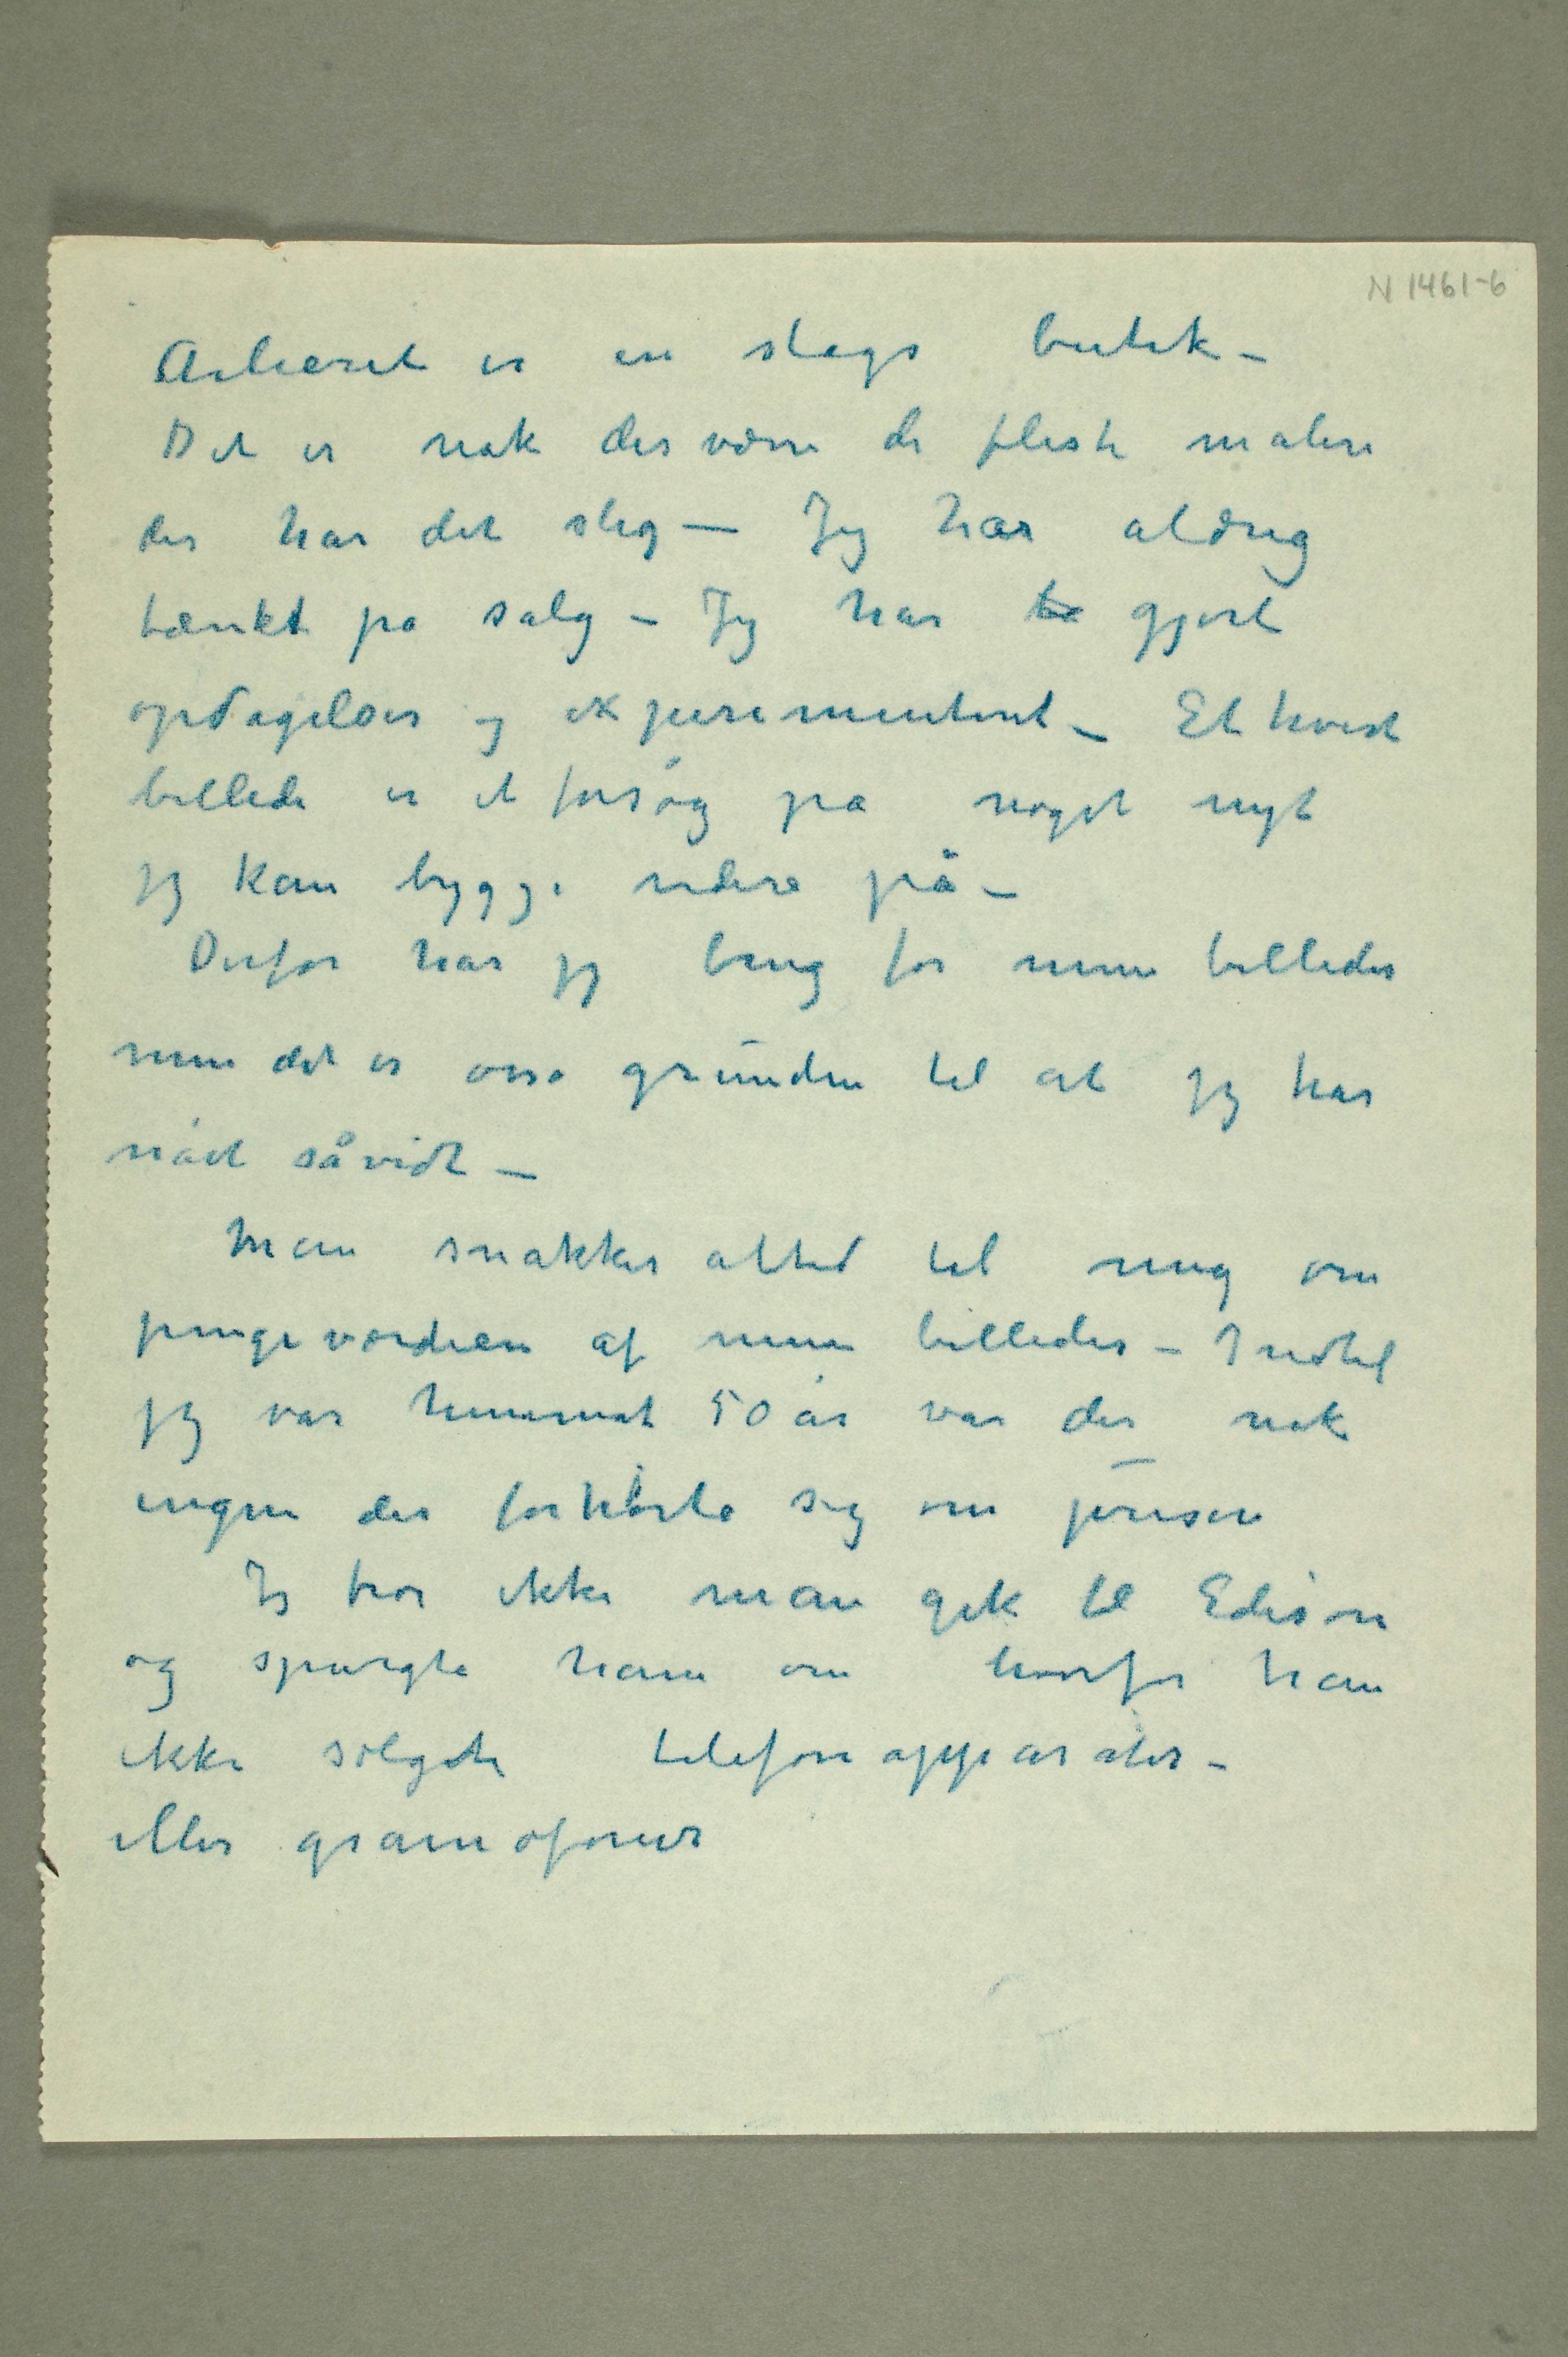 N 1461-6
Atelieret er en slags butik –
Det er nok desværre de fleste malere
der har det slig – Jeg har aldrig
tænkt pa salg – Jeg har te gjort
opdagelser og experimentert – Et hvert
billede er et forsøg pa noget nyt
jeg kan bygge videre på –
Derfor har jeg brug for mine billeder
men det er osså grunden til at jeg har
nået såvidt –
Man snakker altid til mig om
pengeværdien af mine billeder – Indtil
jeg var henimot 50 år var der nok
ingen der forhørte sig om prisen
Jeg tror ikke man gik til Edison
og spurgte ham om hvorfor han
ikke solgte telefonapparater –
eller gramofoner